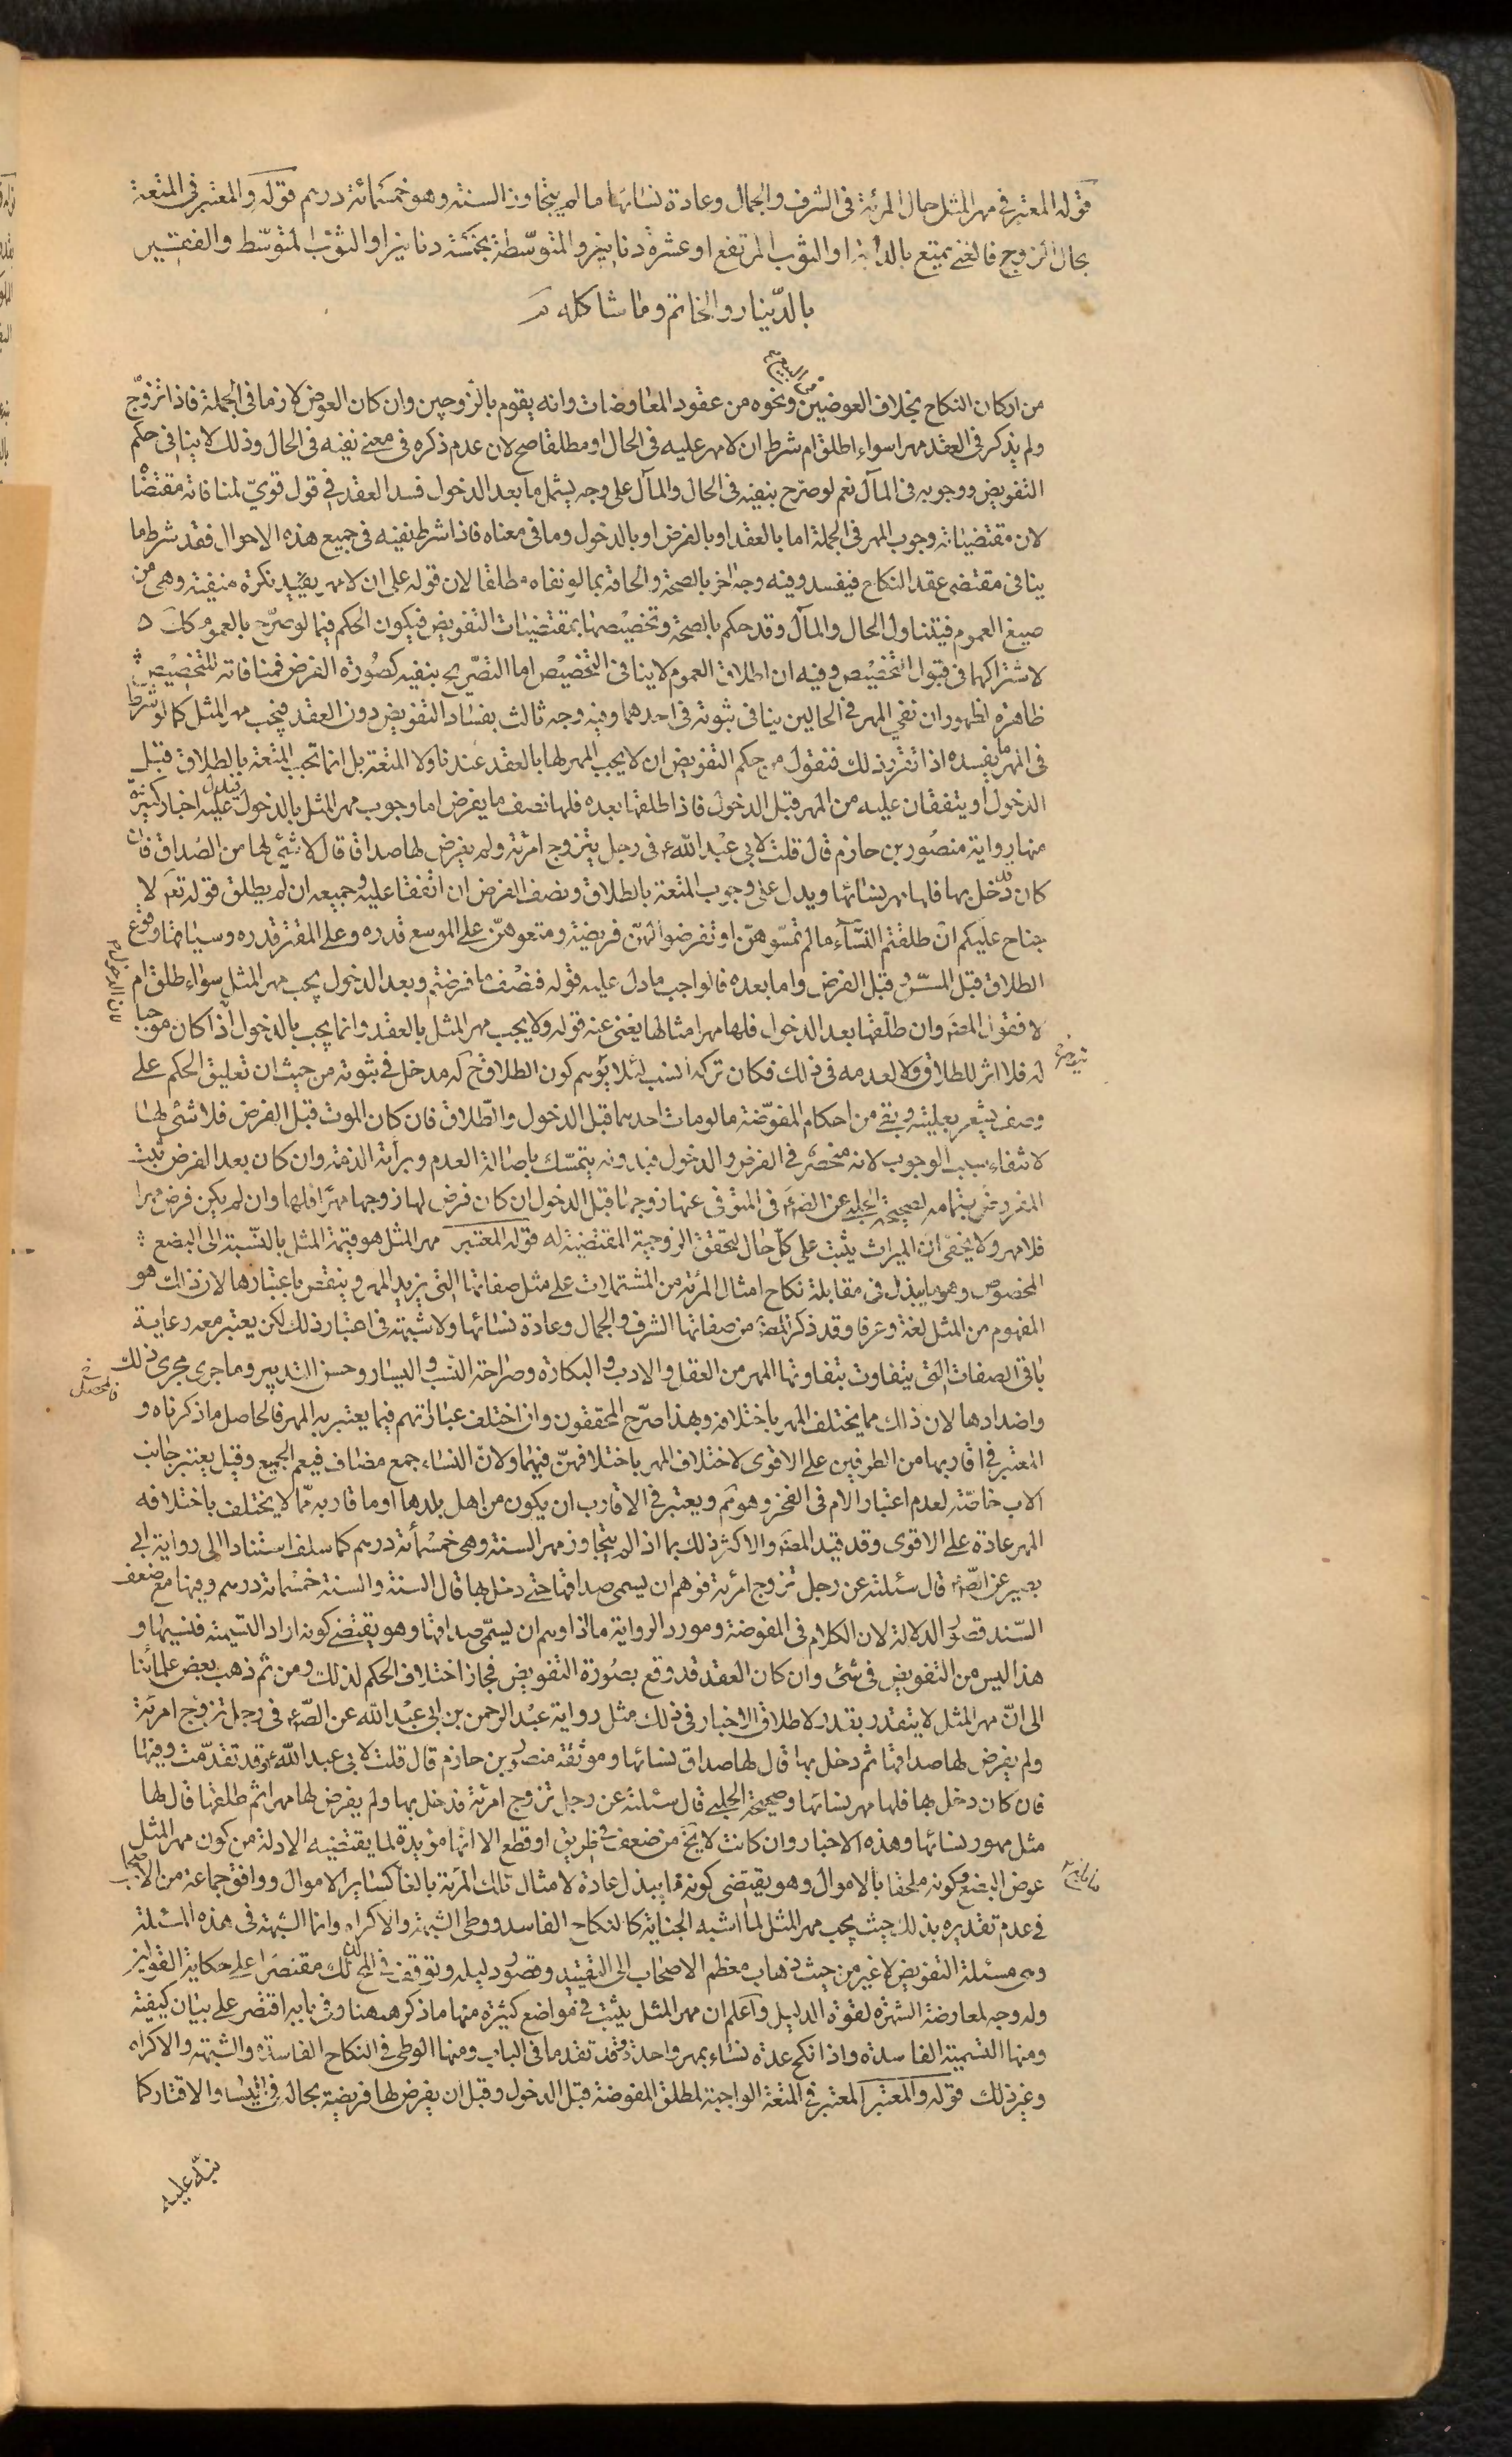 قوله المعتبر في مهر المثل حال المرئة في الشرف والجمال وعادة نسائها ما لم يتجاوز السنة وهو خمسمائة درهم قوله والمعتبر في المتعة
بحال الزوج فالغنى يمتع بالدابة او الثوب المرتفع او عشرة دنانير والمتوسط بخمسة دنانير او الثوب المتوسط والفقير
بالدينار والخاتم وما شاكله
من اركان النكاح بخلاف العوضين من البيع ونحوه من عقود المعاوضات وانه يقوم بالزوجين وان كان العوض لازما في الجملة فاذا تزوج
ولم يذكر في العقد مهرا سواء اطلق ام شرط ان لا مهر عليه في الحال او مطلقا صح لان عدم ذكره في معنى نفيه في الحال وذلك لا ينافى حكم
التفويض ووجوبه في المآل نعم لو صرح بنفيه في الحال والمآل على وجه يشمل ما بعد الدخول فسد العقد في قول قوي لمنافاته مقتضاه
لان مقتضياته وجوب المهر في الجملة اما بالعقد او بالفرض او بالدخول وما في معناه فاذا شرط نفيه في جميع هذه الاحوال فقد شرط ما
ينافى مقتضى عقد النكاح فيفسد وفيه وجه اخر بالصحة والحاقه بما لو نفاه مطلقا لان قوله على ان لا مهر يفيد نكرة منفية وهى من
صيغ العموم فيتناول الحال والمآل وقد حكم بالصحة وتخصيصها بمقتضيات التفويض فيكون الحكم فيما لو صرح بالعموم كك
لاشتراكهما في قبول التخصيص وفيه ان اطلاق العموم لا ينافى التخصيص اما التصريح بنفيه كصورة الفرض فمنافاته للتخصيص
ظاهرة لظهور ان نفي المهر في الحالين ينافى ثبوته في احدهما وفيه وجه ثالث بفساد التفويض دون العقد فيجب مهر المثل كما لو شرط
في المهر ما يفسده اذا تقرر ذلك فنقول من حكم التفويض ان لا يجب المهر لها بالعقد عندنا ولا المتعة بل انما تجب المتعة بالطلاق قبل
الدخول او يتفقان عليه من المهر قبل الدخول فاذا طلقها بعده فلها نصف ما يفرض اما وجوب مهر المثل بالدخول فيدل عليه اخبار كثيرة
منها رواية منصور بن حازم قال قلت لابى عبد الله ع في رجل يتزوج امرئة ولم يفرض لها صداقا قال لا شئ لها من الصداق فان
كان دخل بها فلها مهر نسائها ويدل على وجوب المتعة بالطلاق ونصف الفرض ان اتفقا عليه وجميعه ان لم يطلق قوله تعم لا
جناح عليكم ان طلقتم النساء ما لم تمسوهن او تفرضوا لهن فريضة ومتعوهن على الموسع قدره وعلى المقتر قدره وسياقها وقوع
الطلاق قبل المس وقبل الفرض واما بعده فالواجب ما دل عليه قوله فنصف ما فرضتم وبعد الدخول يجب مهر المثل سواء طلق ام
لا فقول المصنف وان طلقها بعد الدخول فلها مهر امثالها يغنى عنه قوله ولا يجب مهر المثل بالعقد وانما يجب بالدخول لان الدخول اذا كان موجبا
له فلا اثر للطلاق ولا لعدمه في ذلك فكان تركه انسب لئلا يوهم كون الطلاق ح له مدخل في ثبوته من حيث ان تعليق الحكم على
وصف يشعر بعليته وبقى من احكام المفوضة ما لو مات احدهما قبل الدخول والطلاق فان كان الموت قبل الفرض فلا شئ لها
لانتفاء سبب الوجوب لانه منحصر في الفرض والدخول فبدونه يتمسك باصالة العدم وبرائة الذمة وان كان بعد الفرض ثبت
المفروض بتمامه لصحيحة الحلبي عن الصادق في المتوفى عنها زوجها قبل الدخول ان كان فرض لها زوجها مهرا فلها وان لم يكن فرض مهرا
فلا مهر ولا يخفى ان الميراث يثبت على كل حال لتحقق الزوجية المقتضية له قوله المعتبر مهر المثل هو قيمة المثل بالنسبة الى البضع
المخصوص وهو ما يبذل في مقابلة نكاح امثال المرئة من المشتملات على مثل صفاتها التي يزيد المهر وينقص باعتبارها لان ذلك هو
المفهوم من المثل لغة وعرفا وقد ذكر المصنف من صفاتها الشرف والجمال وعادة نسائها ولا شبهة في اعتبار ذلك لكن يعتبر معه رعاية
باقى الصفات التي يتفاوت بتفاوتها المهر من العقل والادب والبكارة وصراحة النسب واليسار وحسن التدبير وما جرى مجرى ذلك
واضدادها لان ذلك مما يختلف المهر باختلافه وبهذا صرح المحققون وان اختلف عباراتهم فيما يعتبر به المهر فالحاصل ما ذكرناه و
المعتبر في اقاربها من الطرفين على الاقوى لاختلاف المهر باختلافهن فيهما ولان النساء جمع مضاف فيعم الجميع وقيل يعتبر جانب
الاب خاصة لعدم اعتبار الام في الفخر وهو ثم ويعتبر في الاقارب ان يكون من اهل بلدها او ما قاربه مما لا يختلف باختلافه
المهر عادة على الاقوى وقد قيد المصنف والاكثر ذلك بما اذا لم يتجاوز مهر السنة وهى خمسمأة درهم كما سلف استنادا الى رواية ابى
بصير عن الصادق قال سئلته عن رجل تزوج امرئة فوهم ان يسمى صداقها حتى دخل بها قال السنة والسنة خمسمائة درهم وفيها مع ضعف
السند قصور الدلالة لان الكلام في المفوضة ومورد الرواية ما اذا وهم ان يسمى صداقها وهو يقتضى كونه اراد التسمية فنسيها و
هذا ليس من التفويض في شئ وان كان العقد قد وقع بصورة التفويض فجاز اختلاف الحكم لذلك ومن ثم ذهب بعض علمائنا
الى ان مهر المثل لا يتقدر بقدر لاطلاق الاخبار في ذلك مثل رواية عبد الرحمن بن ابى عبد الله عن الصادق في رجل تزوج امرئة
ولم يفرض لها صداقها ثم دخل بها قال لها صداق نسائها وموثقة منصور بن حازم قال قلت لابى عبد الله ع وقد تقدمت وفيها
فان كان دخل بها فلها مهر نسائها وصحيحة الحلبي قال سئلته عن رجل تزوج امرئة فدخل بها ولم يفرض لها مهرا ثم طلقها قال لها
مثل مهور نسائها وهذه الاخبار وان كانت لا يخ من ضعف في طريق او قطع الا انها مؤيدة لما يقتضيه الادلة من كون مهر المثل
عوض البضع وكونه ملحقا بالاموال وهو يقتضى كونه ما يبذل عادة لامثال تلك المرئة بالغا كسائر الاموال ووافق جماعة من الاصحاب
في عدم تقديره بذلك حيث يجب مهر المثل لما اشبه الجناية كالنكاح الفاسد ووطى الشبهة والاكراه وانما الشبهة في هذه المسئلة
وهى مسئلة التفويض لا غير من حيث ذهاب معظم الاصحاب الى التقييد وقصور دليله وتوقف في لذلك مقتصرا على حكاية القولين
وله وجه لمعاوضة الشهرة لقوة الدليل واعلم ان مهر المثل يثبت في مواضع كثيرة منها ما ذكر ههنا وفي بابه اقتصر على بيان كيفية
ومنها التسمية الفاسدة واذا نكح عدة نساء بمهر واحد وقد تقدما في الباب ومنها الوطى في النكاح الفاسد والشبهة والاكراه
وغير ذلك قوله والمعتبر المعتبر في المتعة الواجبة لمطلق المفوضة قبل الدخول وقبل ان يفرض لها فريضة بحاله في اليسار والاقتار كما
نبه عليه